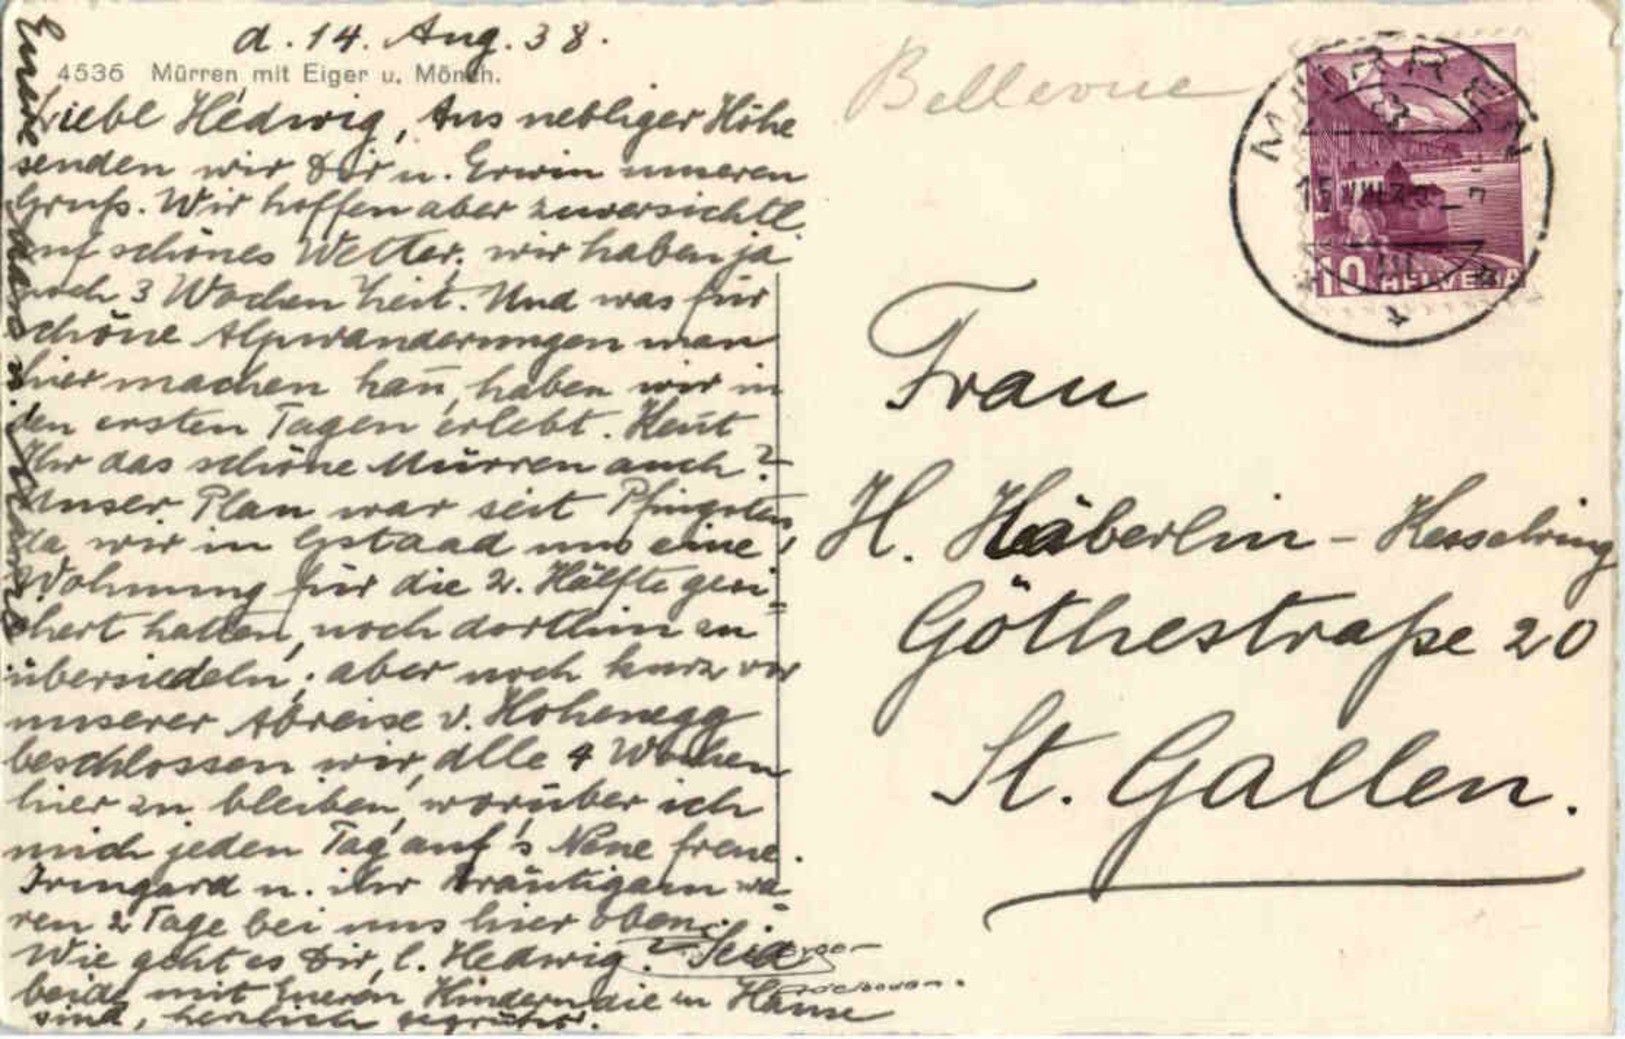 d. 14. Aug. 38.
4536 Mürren mit Eiger u. Mönch.
Liebe Hedwig, Aus nebliger Höhe
senden wir Dir u. Erwin unseren
Gruß. Wir hoffen aber zuversichtl.
auf schönes Wetter, wir haben ja
noch 3 Wochen Zeit. Und was für
schöne Alpwanderungen man
hier machen kañ, haben wir in
den ersten Tagen erlebt. Kent
Ihr das schöne Mürren auch?
Unser Plan war seit Pfingsten,
da wir in Gstaad uns eine
Wohnung für die 2. Hälfte gesi=
chert hatten, noch dorthin zu
übersiedeln; aber noch kurz vor
unserer Abreise v. Hohenegg
beschlossen wir, alle 4 Wochen
hier zu bleiben, worüber ich
mich jeden Tag auf's Neue freue.
Irmgard u. ihr Bräutigam wa=
ren 2 Tage bei uns hier oben.
Wie geht es Dir, l. Hedwig? Seid
beide mit Eueren Kindern die zu Hause
sind, herzlich gegrüßt.
Euere
Bellevue
MÜRREN
15.VIII.38
10 HELVETIA
Frau
H. Häberlin-Kesselring
Göthestraße 20
St. Gallen.